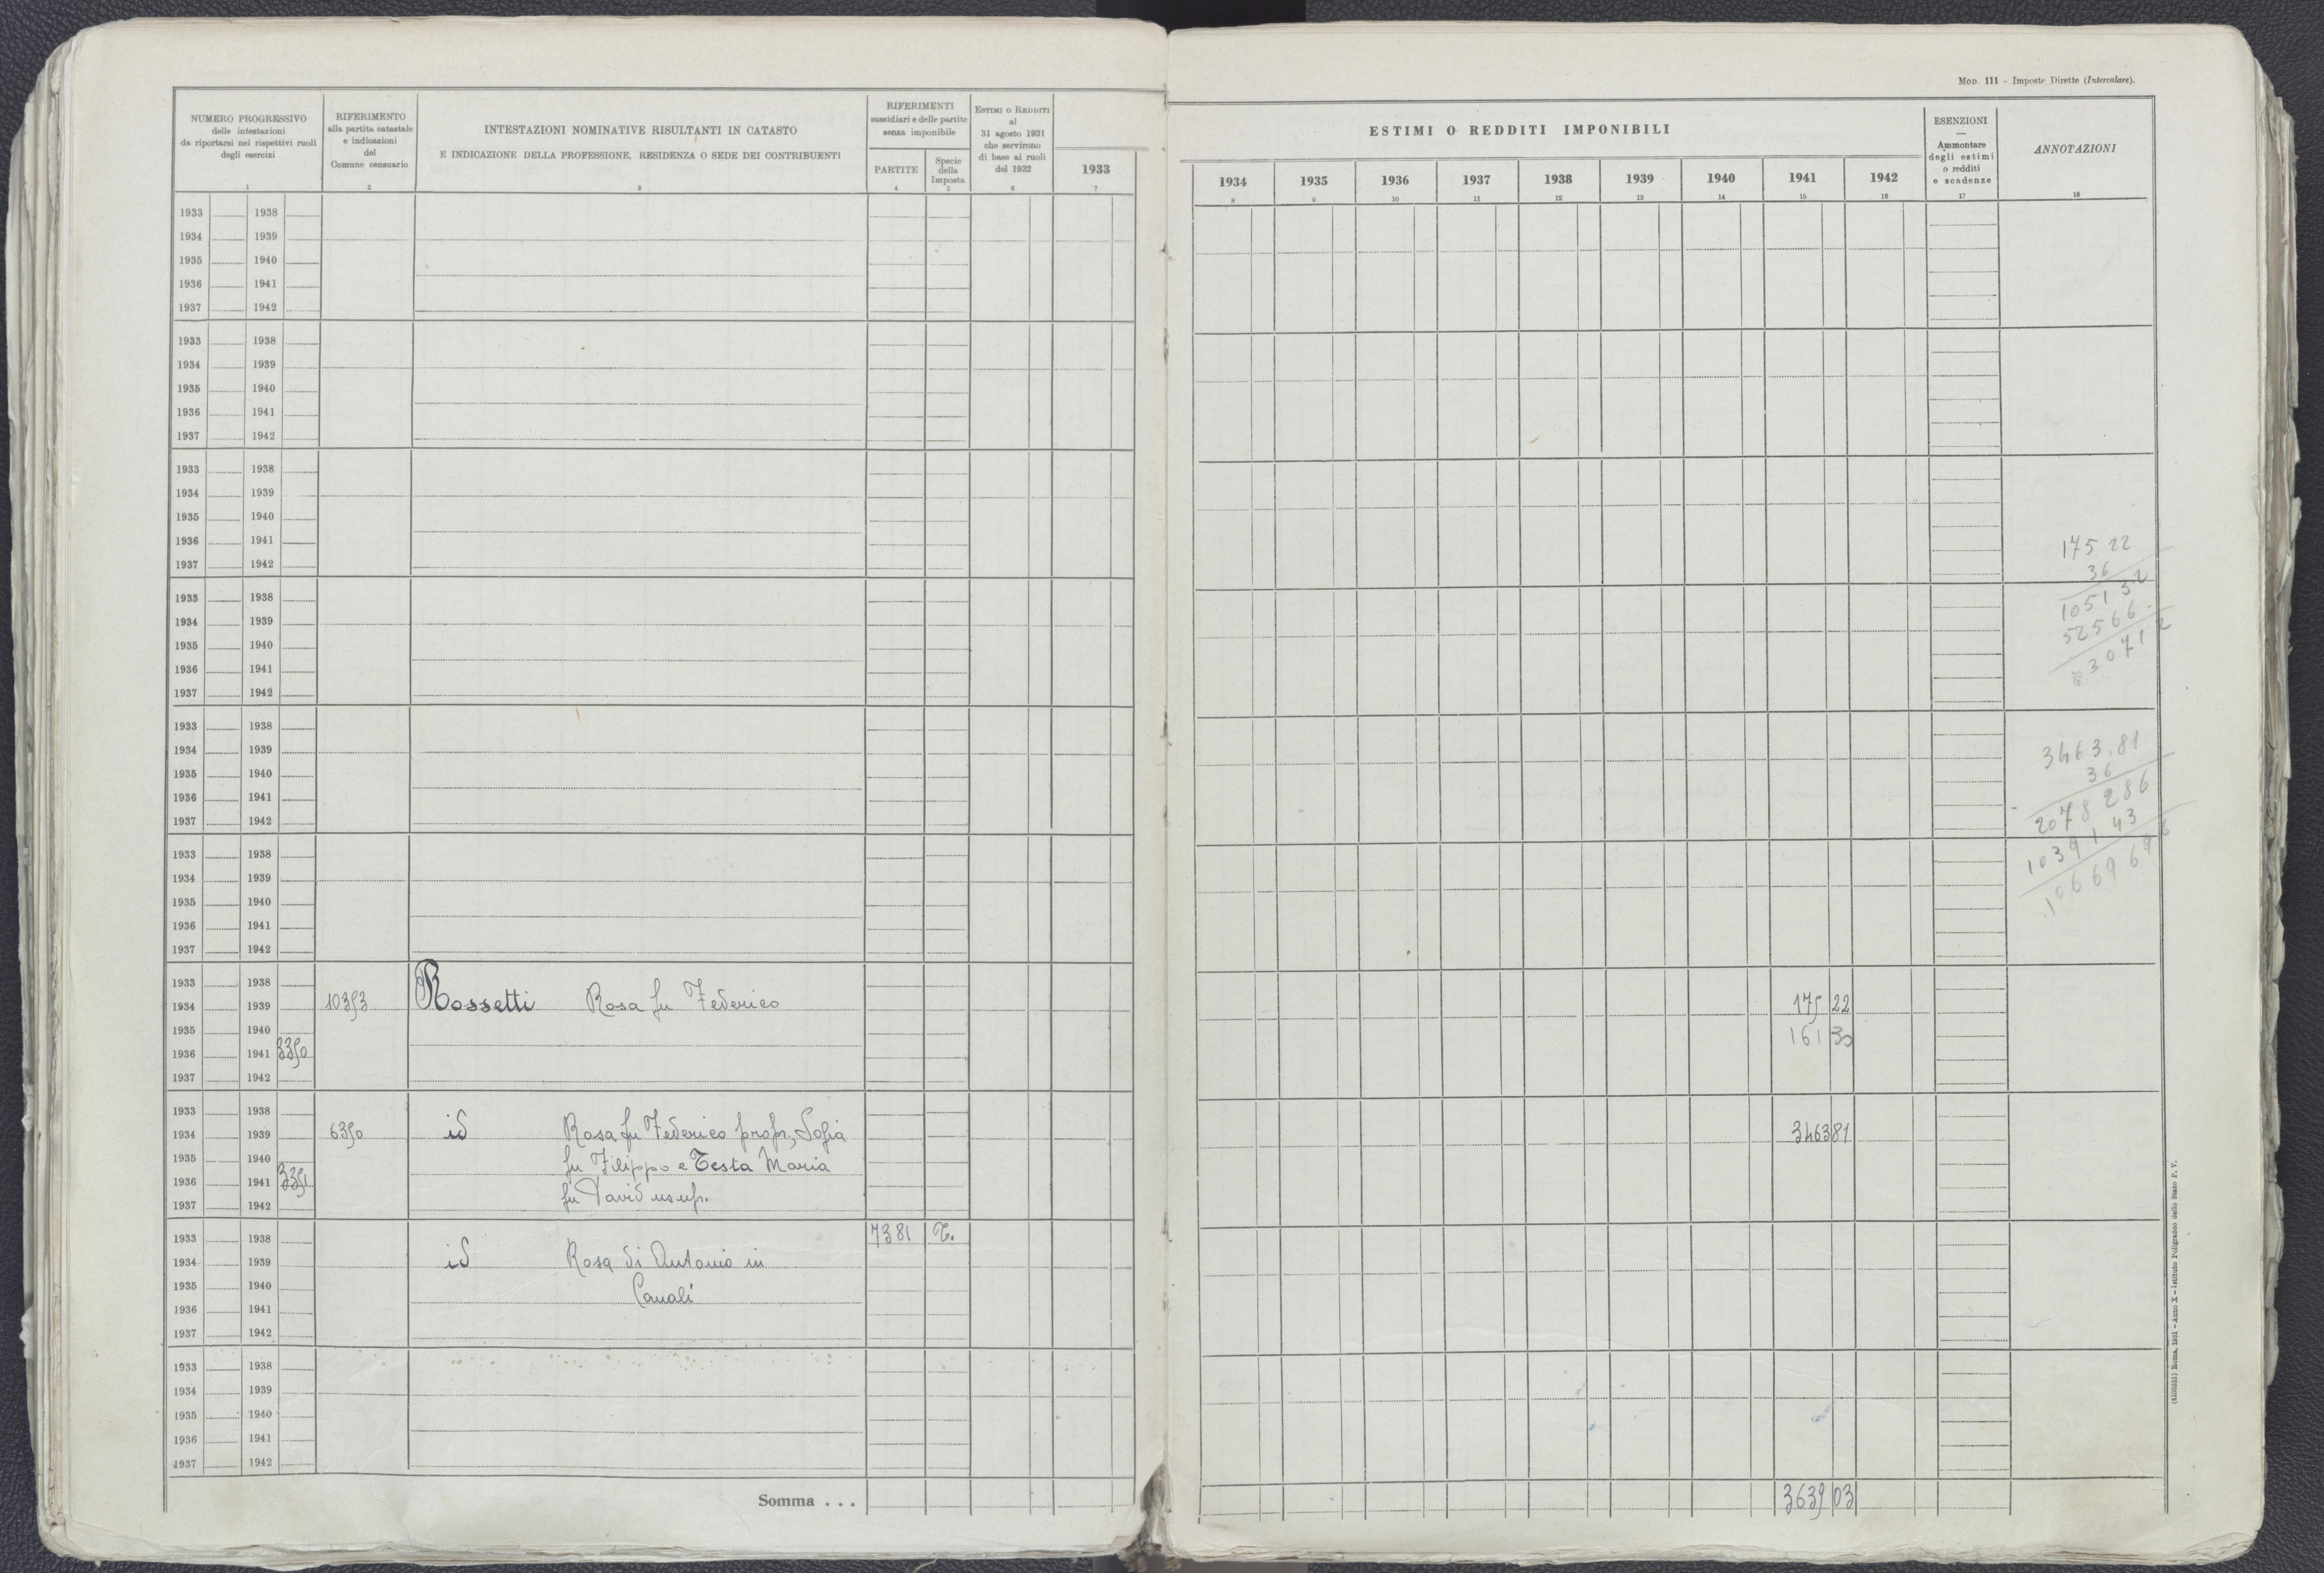 NUMERO PROGRESSIVO
delle intestazioni
da riportarsi nei rispettivi ruoli
degli esercizi
1
RIFERIMENTO
alla partita catastale
e indicazioni
del
Comune censuario
2
INTESTAZIONI NOMINATIVE RISULTANTI IN CATASTO
E INDICAZIONE DELLA PROFESSIONE, RESIDENZA O SEDE DEI CONTRIBUENTI
3
RIFERIMENTI
sussidiari e delle partite
senza imponibile
PARTITE
4
Specie
della
Imposta
5
ESTIMI O REDDITI
al
31 agosto 1931
che servirono
di base ai ruoli
del 1932
6
1933
7
1933 1938
1934 1939
1935 1940
1936 1941
1937 1942
1933 1938
1934 1939
1935 1940
1936 1941
1937 1942
1933 1938
1934 1939
1935 1940
1936 1941
1937 1942
1933 1938
1934 1939
1935 1940
1936 1941
1937 1942
1933 1938
1934 1939
1935 1940
1936 1941
1937 1942
1933 1938
1934 1939
1935 1940
1936 1941
1937 1942
1933 1938
1934 1939 10353 Rossetti Rosa fu Federico
1935 1940
1936 1941 3350
1937 1942
1933 1938
1934 1939 6350 id Rosa fu Federico propr., Sofia
1935 1940 fu Filippo e Testa Maria
1936 1941 3351
1937 1942 fu David usufr.
1933 1938 7381 T.
1934 1939 id Rosa di Antonio in
1935 1940 Canali
1936 1941
1937 1942
1933 1938
1934 1939
1935 1940
1936 1941
1937 1942
Somma . . .
MOD. 111 - Imposte Dirette (Intercalare).
ESTIMI O REDDITI IMPONIBILI
1934 1935 1936 1937 1938 1939 1940 1941 1942
8 9 10 11 12 13 14 15 16
ESENZIONI
—
Ammontare
degli estimi
o redditi
e scadenze
17
ANNOTAZIONI
18
175 22
36
1051 32
52566
63071 2
3463.81
36
2078 286
10391 43
10669 6
175 22
161 30
3463 81
3639 03
(4193331) Roma, 1931 - Anno X - Istituto Poligrafico dello Stato P. V.